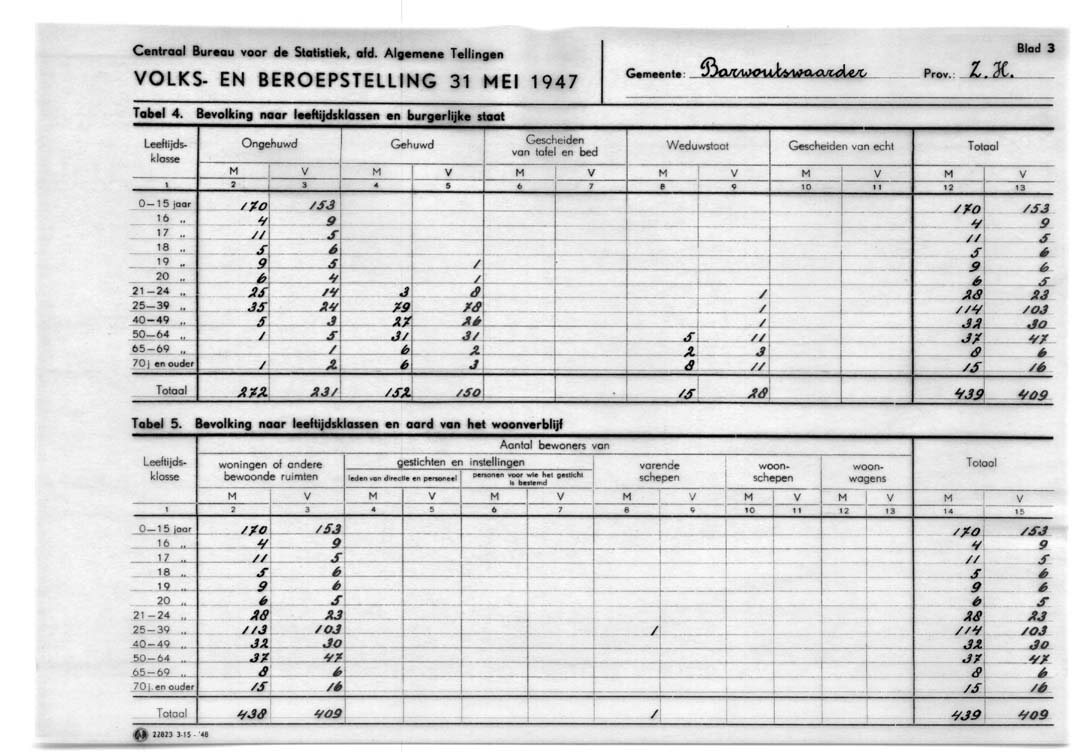 Centraal Bureau voor de Statistiek, afd. Algemene Tellingen
VOLKS- EN BEROEPSTELLING 31 MEI 1947
Gemeente: Barwoutswaarder Prov.: Z. H.
Blad 3
Tabel 4. Bevolking naar leeftijdsklassen en burgerlijke staat
Leeftijds-klasse Ongehuwd Gehuwd Gescheiden van tafel en bed Weduwstaat Gescheiden van echt Totaal
M V M V M V M V M V M V
1 2 3 4 5 6 7 8 9 10 11 12 13
0—15 jaar 170 153 170 153
16 „ 4 9 4 9
17 „ 11 5 11 5
18 „ 5 6 5 6
19 „ 9 5 1 9 6
20 „ 6 4 1 6 5
21—24 „ 25 14 3 8 1 28 23
25—39 „ 35 24 79 78 1 114 103
40—49 „ 5 3 27 26 1 32 30
50—64 „ 1 5 31 31 5 11 37 47
65—69 „ 1 6 2 2 3 8 6
70 j. en ouder 1 2 6 3 8 11 15 16
Totaal 272 231 152 150 15 28 439 409
Tabel 5. Bevolking naar leeftijdsklassen en aard van het woonverblijf
Aantal bewoners van
Leeftijds-klasse woningen of andere bewoonde ruimten gestichten en instellingen varende schepen woon-schepen woon-wagens Totaal
leden van directie en personeel personen voor wie het gesticht is bestemd
M V M V M V M V M V M V M V
1 2 3 4 5 6 7 8 9 10 11 12 13 14 15
0—15 jaar 170 153 170 153
16 „ 4 9 4 9
17 „ 11 5 11 5
18 „ 5 6 5 6
19 „ 9 6 9 6
20 „ 6 5 6 5
21—24 „ 28 23 28 23
25—39 „ 113 103 1 114 103
40—49 „ 32 30 32 30
50—64 „ 37 47 37 47
65—69 „ 8 6 8 6
70 j. en ouder 15 16 15 16
Totaal 438 409 1 439 409
22823 3-15 - '48